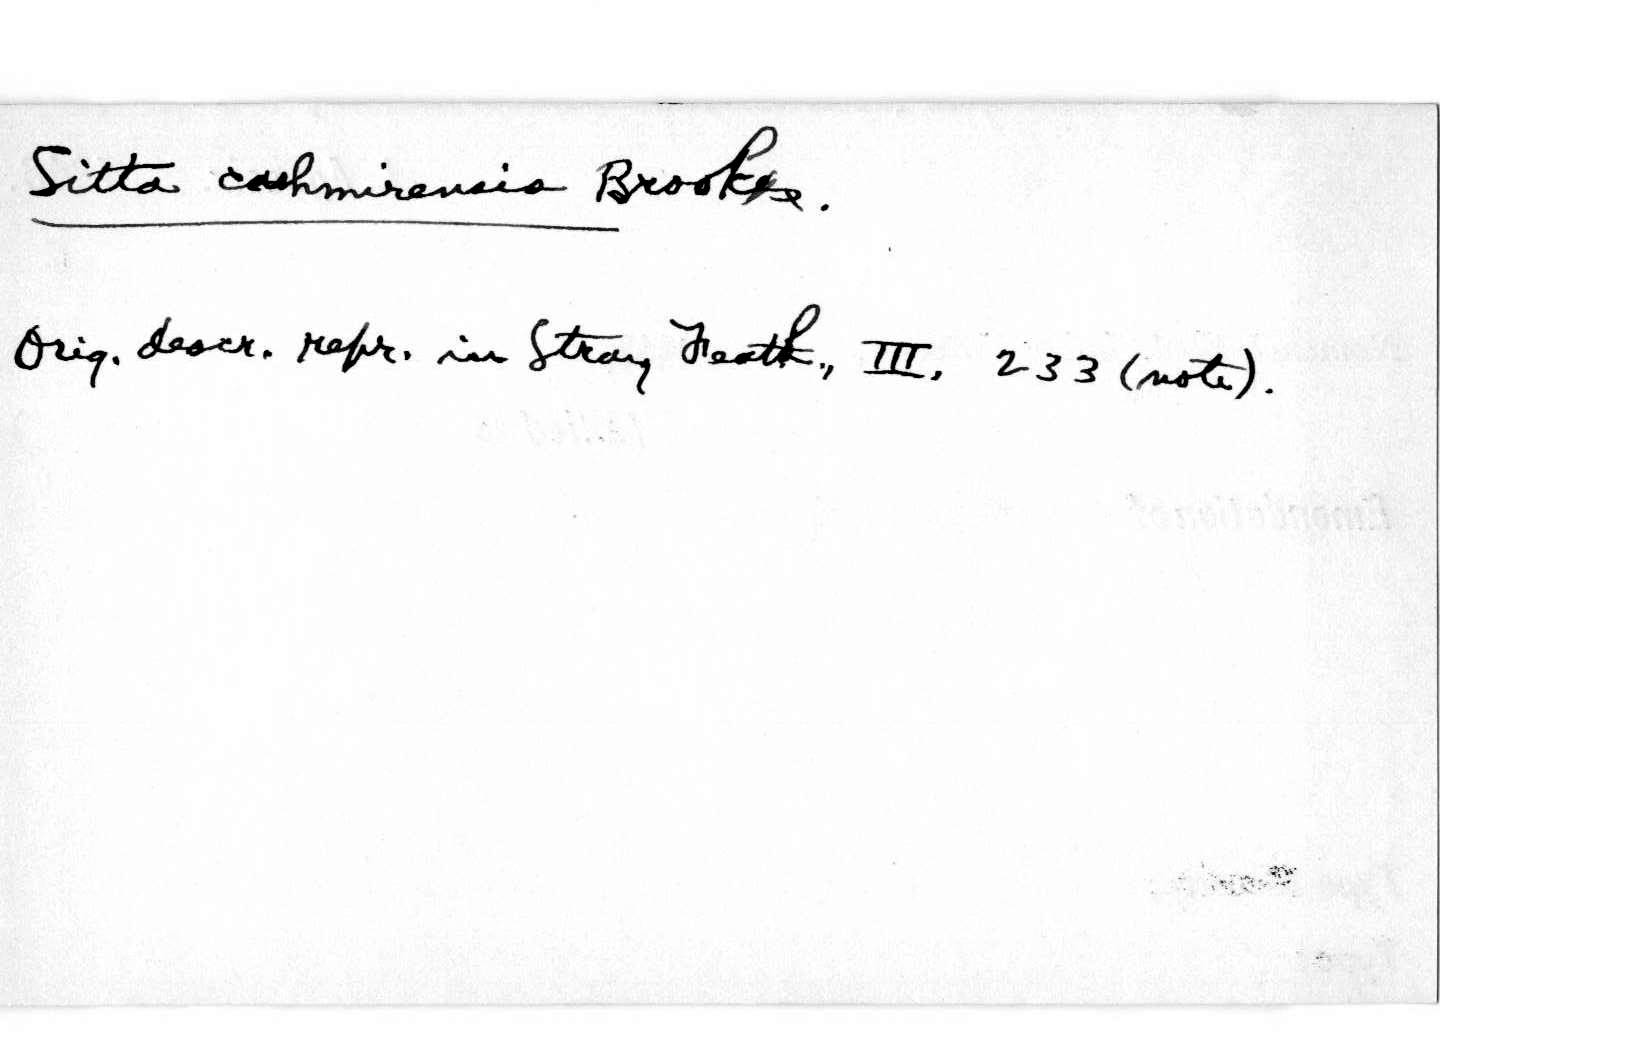 Sitta cashmirensis Brooks.
Orig. descr. repr. in Stray Feath., III, 233 (note).